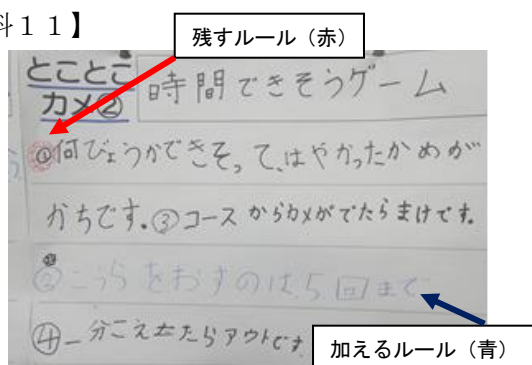 料11】
残すルール（赤）
とことこ
カメ②
時間できそうゲーム
①何びょうかできそって、はやかったかめが
かちです。③コースからカメがでたらまけです。
②こうらをおすのは、5回まで
④一分こえたらアウトです
加えるルール（青）